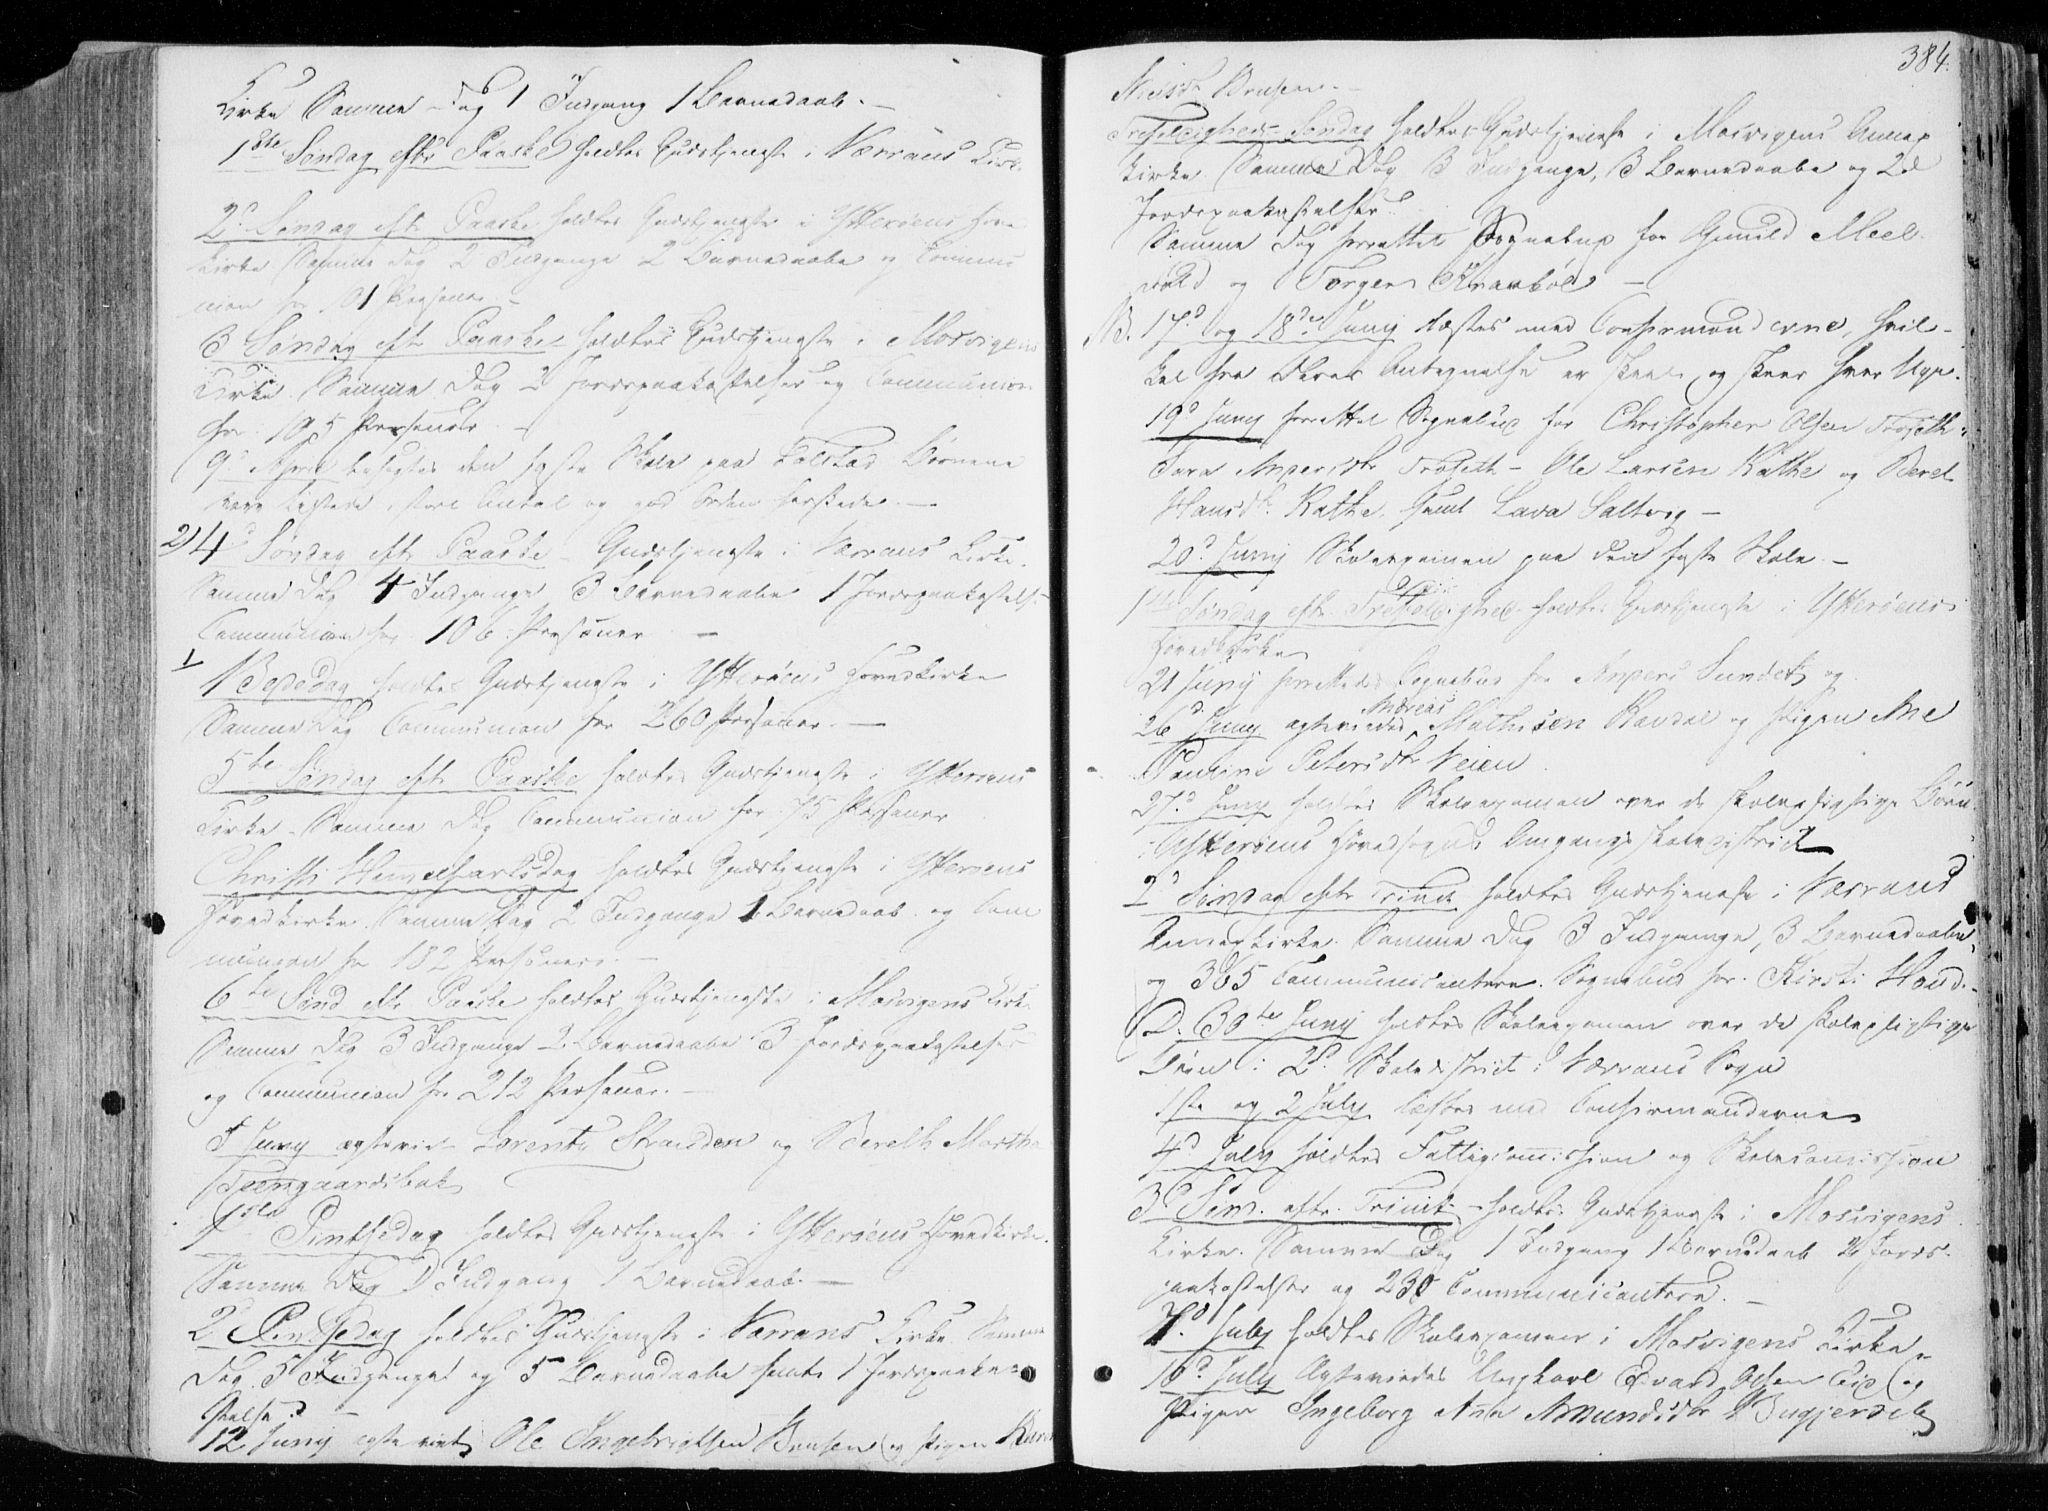 Kirke Samme Dag 1 Indgang 1 Barnedaab.
1ste Søndag efter Paaske holdtes Gudstjeneste i Værrans Kirke
2d Søndag efter Paaske holdtes Gudstjeneste i Ytterøens Hoved
kirke Samme Dag 2 Indgange 2 Barnedaabe og Commu
nion for 101 Personer
3 Søndag eftr Paaske holdtes Gudstjeneste i Mosvigens
Kirke Samme Dag 2 Jordspaakastelser og Communion
for 105 Personer.
9d April besøgtes den faste Skole paa Børnene
vare i stort Antal og god Orden herskede.
4d Søndag eftr Paaske Gudstjeneste i Værrans Kirke.
Samme Dag 4 Indgange 3 Barnedaabe 1 Jordspaakastelse
Communion for 106 Personer
Bededag holdtes Gudstjeneste i Ytterøens Hovedkirke
Samme Dag Communion for 260 Personer.
5te Søndag eftr Paaske holdtes Gudstjeneste i Ytterøens
Kirke Samme Dag Communion for 75 Personer
Christi Himmelfartsdag holdtes Gudstjeneste i Ytterøens
Hovedkirke. Samme Dag 2 Indgange 1 Barnedaab og Com
munion for 182 Personer.
6te Sønd eftr Paaske holdtes Gudstjeneste i Mosvigens Kirke
Samme Dag 3 Indgange 2 Barnedaabe 3 Jordspaakastelser
og Communion for 212 Personer.
Juny ægteviet Lorents Stranden og Bereth Martha

1ste Pintsedag holdtes Gudstjeneste i Ytterøens Hovedkirke.
Samme Dag 1 Indgang 1 Barnedaab.
2d Pintsedag holdtes Gudstjeneste i Værrans Kirke Samme
Dag 5 Indgange og 5 Barnedaabe samt 1 Jordspaaka
stelse.
12 Juny ægteviet Ole Ingebrigtsen og Pigen
384.
Trefoldigheds-Søndag holdtes Gudstjeneste i Mosvigens Annex
kirke. Samme Dag 3 Indgange, 3 Barnedaabe og 2
Jordspaakastelser.
Samme Dag forrettet Sognebud for Gunild
og Jørgen
NB. 17d og 18de Juny læstes med Confirmanderne, hvil-
ket fra Antegnelse er skeet og skeer hver Uge.
19d Juny forrettet Sognebud for Christopher Olsen Troseth
Andersdtr Troseth - Ole Larsen Kathe og Beret
Hansdtr. Kathe. samt Lava Saltvig
20d Juny Skoleexamen paa den faste Skole.
1ste Søndag eftr Trefoldighed holdtes Gudstjeneste i Ytterøens
Hovedkirke
21 Juny forrettedes Sognebud for Anders Sundet og
26d Juny ægteviedes Andreas Mathisen Ravdal og Pigen Ane
Pauline Petersdtr Veien
27d Juny holdtes Skoleexamen over de skolepligtige Børn
i Ytterøens Hovedsogns Omgangsskoledistrict
2d Søndag eftr Trinit holdtes Gudstjeneste i Værrans
Annexkirke. Samme Dag 3 Indgange, 3 Barnedaabe,
og 365 Communicantere. Sognebud for Kirsti
D. 30te Juny holdtes Skoleexamen over de skolepligtige
Børn i 2d Skoledistrict i Værrans Sogn
1ste og 2 July læstes med Confirmanderne
4d July holdtes Fattigcommission og Skolecommission
3d Søn. eftr. Trinit holdtes Gudstjeneste i Mosvigens
Kirke. Samme Dag 1 Indgang 1 Barnedaab 2 Jords-
paakastelser og 230 Communicantere.
7d July holdtes Skoleexamen i Mosvigens Kirke
10d July Ægteviedes Ungkarl Edvard Olsen og
Pigen Ingeborg Ane Amundsdtr